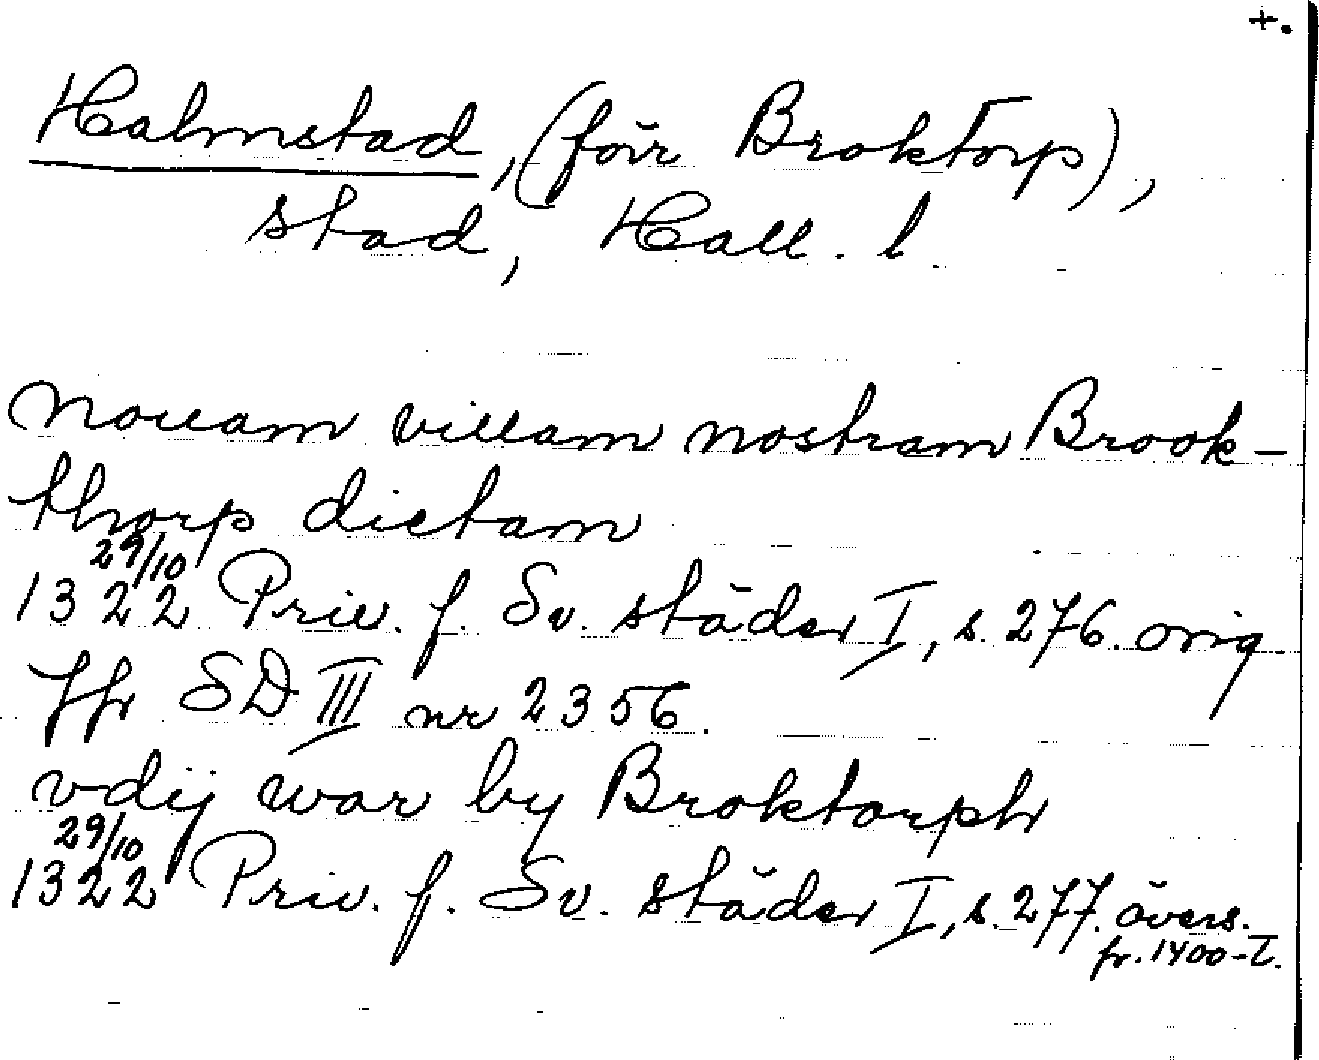 +.
Halmstad, (förr Broktorp),
stad, Hall. l.
nouam villam nostram Brook-
thorp dictam
29/10
1322 Priv. f. Sv. städer I, s. 276. orig
Jfr SD III nr 2356.
vdij war by Broktorph
29/10
1322 Priv. f. Sv. städer I, s. 277. övers.
fr. 1400-t.